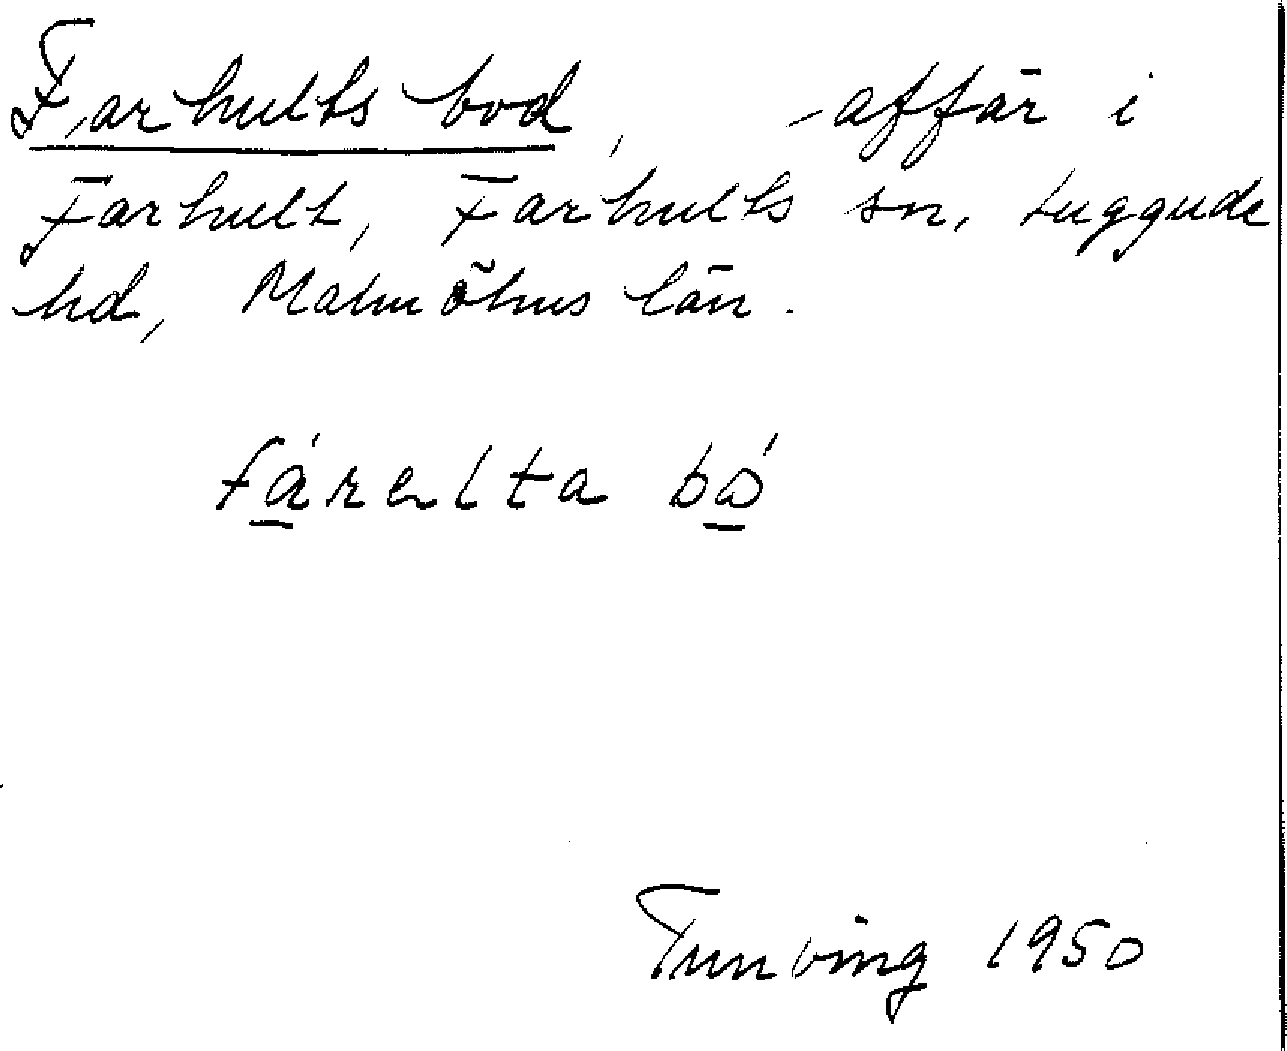 Farhults bod, affär i
Farhult, Farhults sn, Luggude
hd, Malmöhus län.
fárelta bó
Tunving 1950